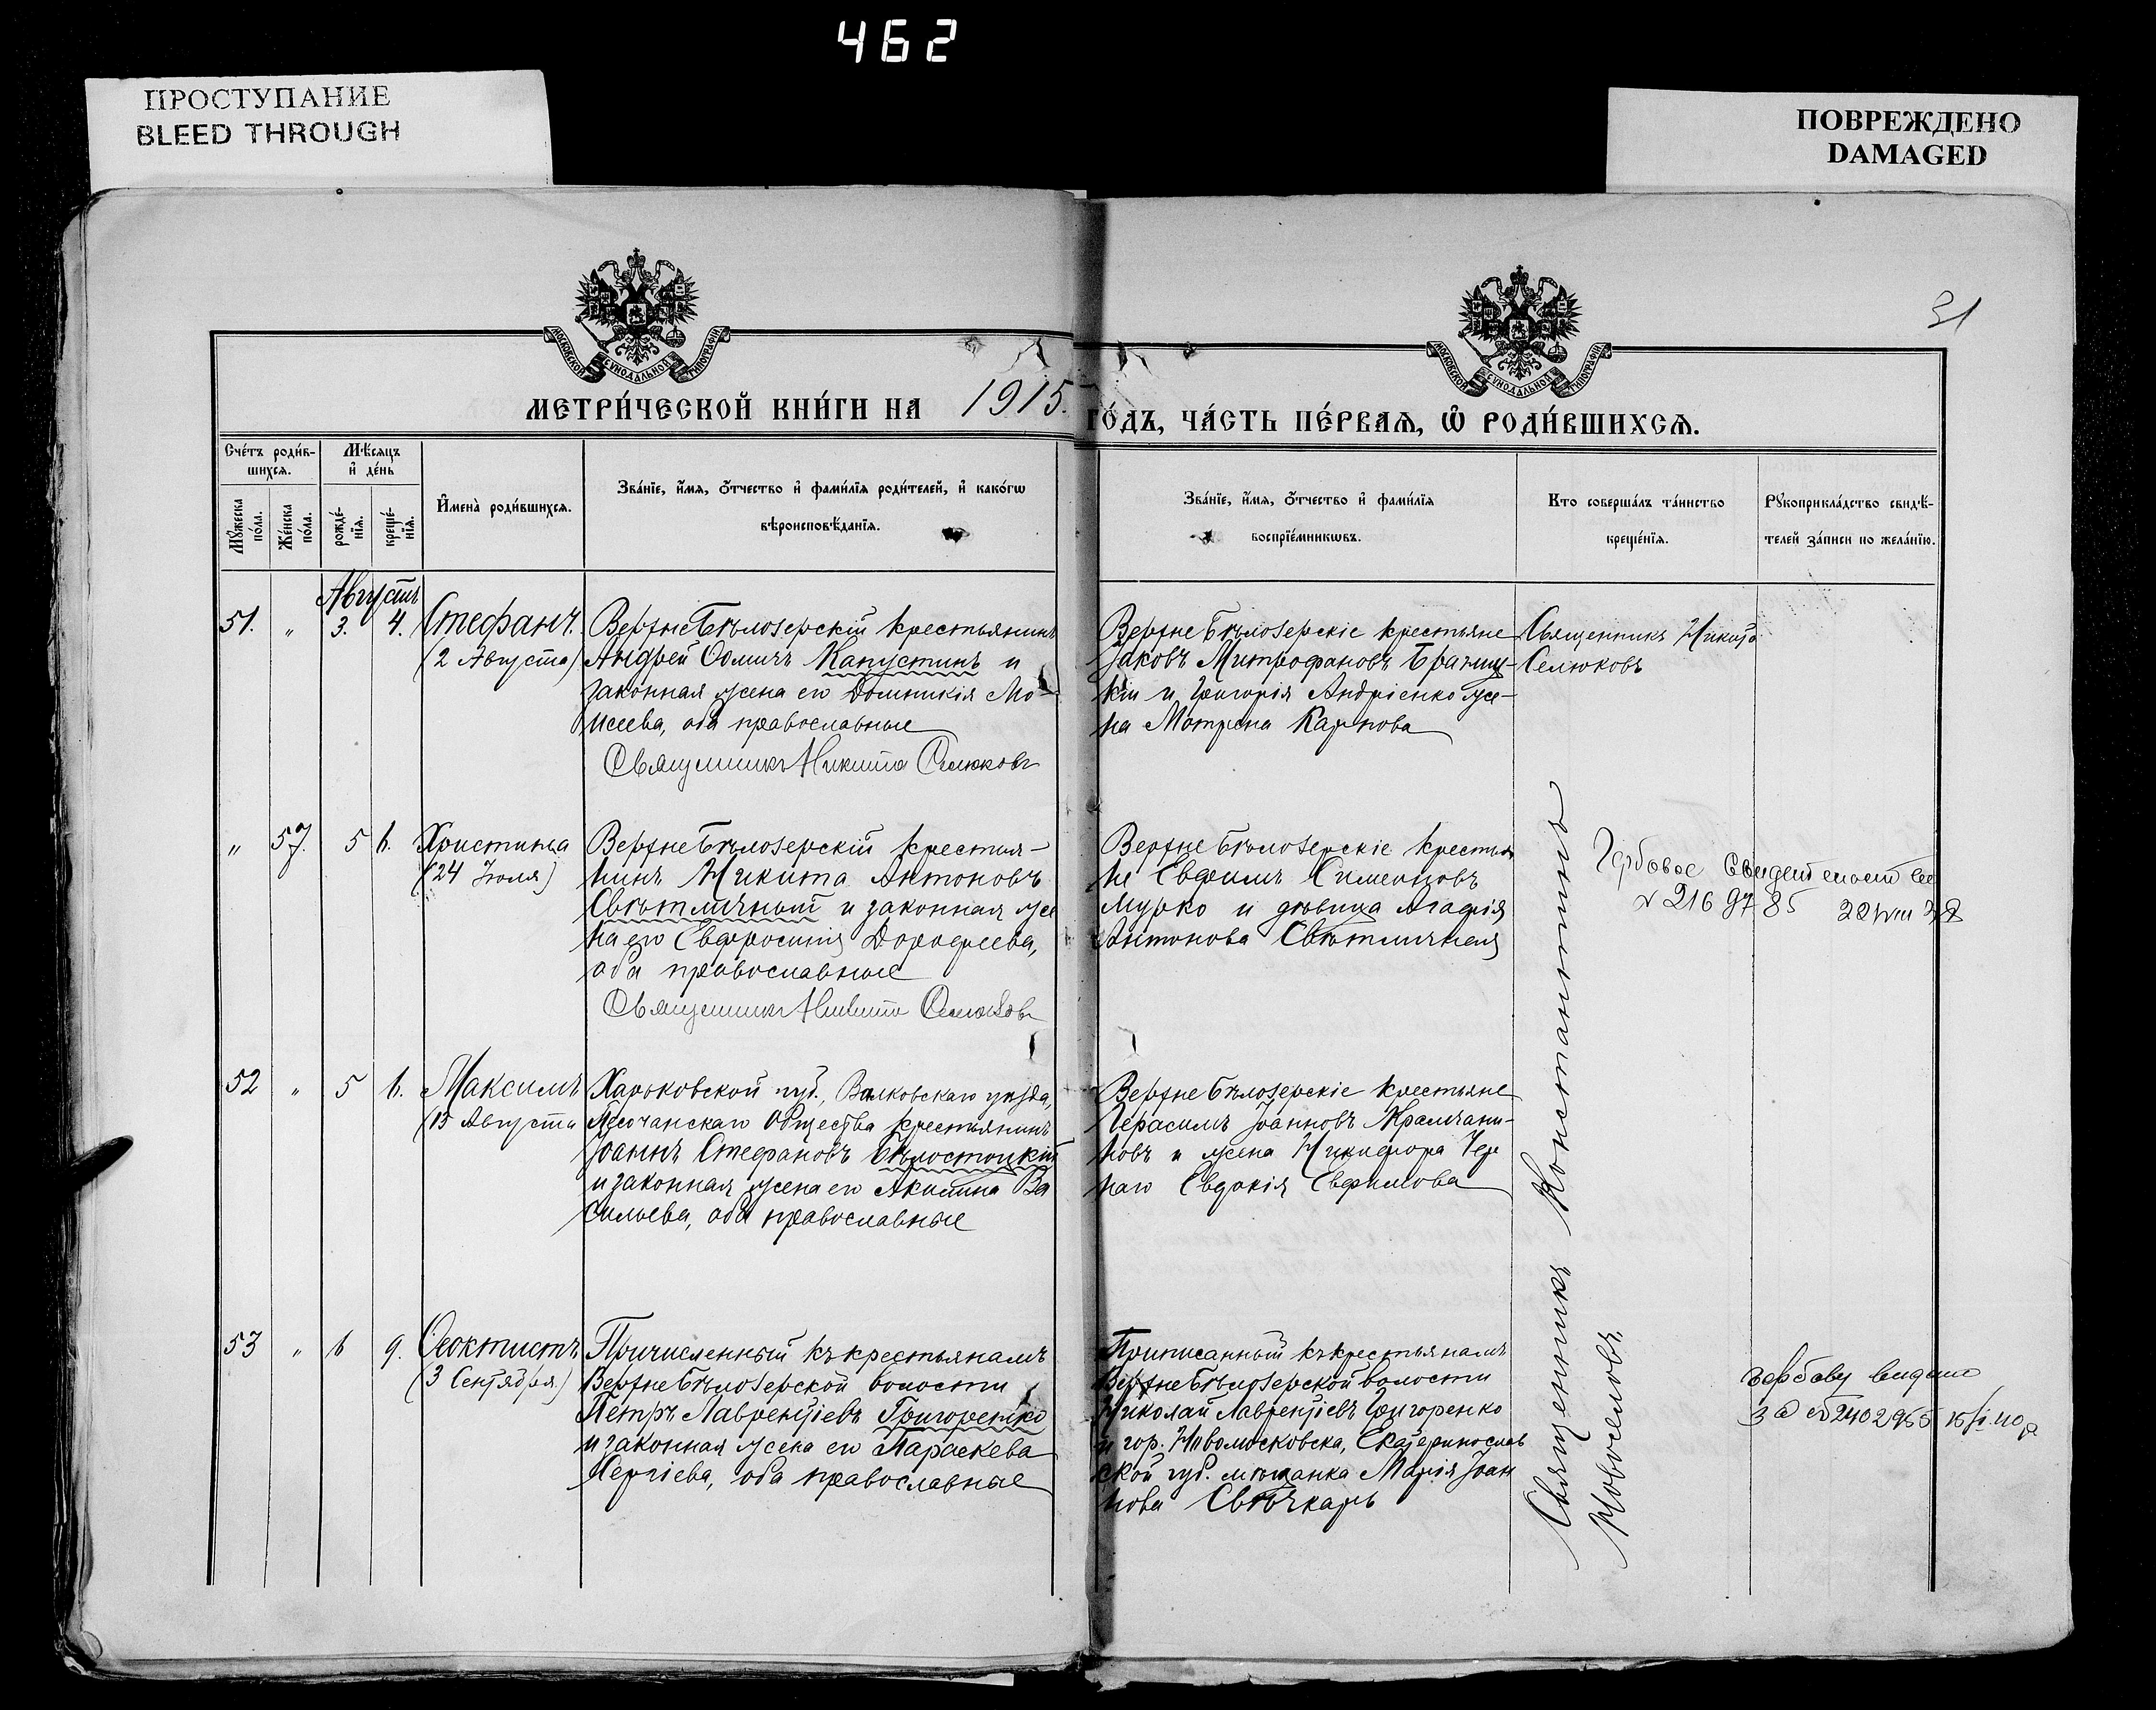 462
ПРОСТУПАНИЕ
BLEED THROUGH
ПОВРЕЖДЕНО
DAMAGED
31
МОСКОВСКОЙ СѴНОДАЛЬНОЙ ТИПОГРАФІИ
МОСКОВСКОЙ СѴНОДАЛЬНОЙ ТИПОГРАФІИ
МЕТРИ́ЧЕСКОЙ КНИ́ГИ НА 1915. ГО́ДЪ, ЧА́СТЬ ПЕ́РВАѦ, Ѡ РОДИ́ВШИХСѦ.
Сче́тъ роди́в-
шихся.
Мѣ́сяцъ
и҆ де́нь
Му́жеска
по́ла.
Же́нска
по́ла.
рожде́-
нїя.
креще́-
нїя.
И҆мена̀ роди́вшихся.
Зва́нїе, и҆́мя, о҆́тчество и҆ фами́лїя роди́телей, и҆ како́гѡ
вѣроисповѣ́данїя.
Зва́нїе, и҆́мя, о҆́тчество и҆ фами́лїя
воспрїе́мникѡвъ.
Кто соверша́лъ та́инство
креще́нїя.
Рꙋкоприкла́дство свидѣ́-
телей за́писи по жела́нїю.
Августъ
51. " 3. 4. Стефанъ.
(2 Августа)
ВерхнеБѣлозерскій крестьянинъ
Андрей Ѳоминъ Капустинъ и
законная жена его Домникія Мо-
исеева, оба православные
Священникъ Никита Селюковъ
ВерхнеБѣлозерскіе крестьяне
Іаковъ Митрофановъ
и Григорія Андріенко же-
на Мотрона Карпова
Священникъ Никита
Селюковъ
" 57. 5 6. Христина
(24 Іюля)
ВерхнеБѣлозерскій крестья-
нинъ Никита Антоновъ
Свѣтличный и законная же
на его Евфросинія Дорофеева,
оба православные
Священникъ Никита Селюковъ
ВерхнеБѣлозерскіе крестья
не Евфимъ Симеоновъ
Мурко и дѣвица Агафія
Антонова Свѣтличная
Гербовое
№ 216 97 85
52 " 5 6. Максимъ
(13 Августа
Харьковской губ., Валковскаго уѣзда,
Песочанскаго Общества крестьянинъ
Іоаннъ Стефановъ Бѣлостоцкій
и законная жена его Акилина Ва
сильева, оба православные
ВерхнеБѣлозерскіе крестьяне
Герасимъ Іоанновъ Храмчани-
новъ и жена Никифора Чер
наго Евдокія Евфимова
53 " 6 9. Ѳеоктистъ
(3 Сентября)
Причисленный къ крестьянамъ
ВерхнеБѣлозерской волости
Петръ Лаврентіевъ Григоренко
и законная жена его Параскева
Сергіева, оба православные
Приписанный къ крестьянамъ
ВерхнеБѣлозерской волости
Николай Лаврентіевъ Григоренко
и гор. Новомосковска, Екатеринослав
ской губ. мѣщанка Марія Іоан
нова Свѣчкарь
Священникъ Константинъ
Новоселовъ.
за № 2402955